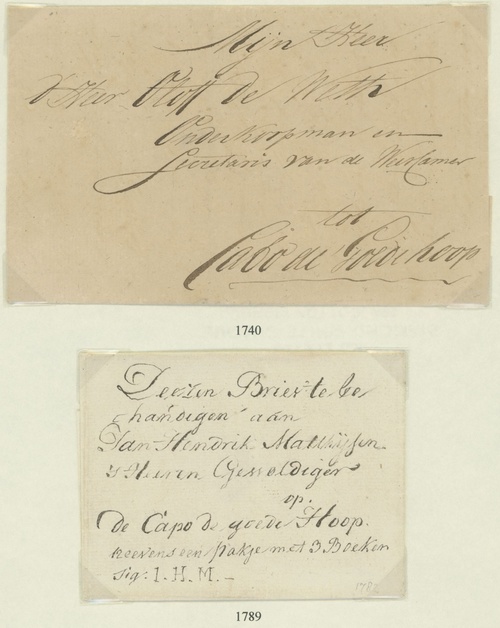 Mijn Heer
d'Heer Oloff de Weth
Onderkoopman en
Secretaris van de Weeskamer
tot
Cabo de Goedehoop
1740
Deezen Brief te be
handigen aan
Jan Hendrik Matthijsen
s Heeren Geweldiger
op.
De Capo de goede Hoop.
neevens een pakje met 3 Boeken
sig: I. H. M. –
1789